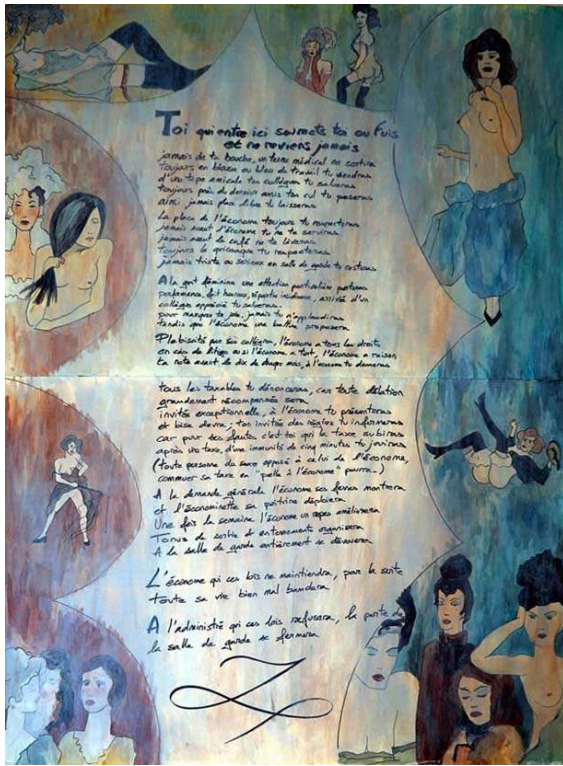 Toi qui entre ici soumets toi ou fuis
et ne reviens jamais
jamais de ta bouche, un terme médical ne sortira
toujours en blouse ou bleu de travail tu viendras
d'une tape amicale ton collègue tu salueras
toujours près du dernier assis ton cul tu poseras
ainsi jamais place libre tu laisseras
La place de l'économe toujours tu respecteras
jamais avant l'économe tu ne te serviras
jamais avant le café ne te lèveras
toujours le quiconque tu respecteras
jamais triste ou sérieux en salle de garde tu resteras
A la gent féminine une attention particulière porteras
performance, fait heureux, répartie insidieuse, arrivée d'un
collègue apprécié tu salueras
pour marquer ta joie, jamais tu n'applaudiras
tandis que l'économe une battue proposera
Plébiscité par ses collègues, l'économe a tous les droits
en cas de litige ou si l'économe a tort, l'économe a raison
Ta note avant le dix de chaque mois, à l'économe tu donneras
tous les taxables tu dénonceras, car toute délation
grandement récompensée sera
invitée exceptionnelle, à l'économe tu présenteras
et bise devra; ton invitée des règles tu informeras
car pour ses fautes c'est toi qui la taxe subiras
après une taxe, d'une immunité de cinq minutes tu jouiras
(toute personne du sexe opposé à celui de l'économe,
commuer sa taxe en "pelle à l'économe" pourra.)
A la demande générale l'économe ses fesses montrera
et l'économinette sa poitrine déploiera
Une fois la semaine l'économe un repas améliorera
Tonus de sortie et enterrements organisera
A la salle de garde entièrement se dévouera
L'économe qui ces lois ne maintiendra, par la suite
toute sa vie bien mal bandera
A l'administré qui ces lois refusera, la porte de
la salle de garde se fermera